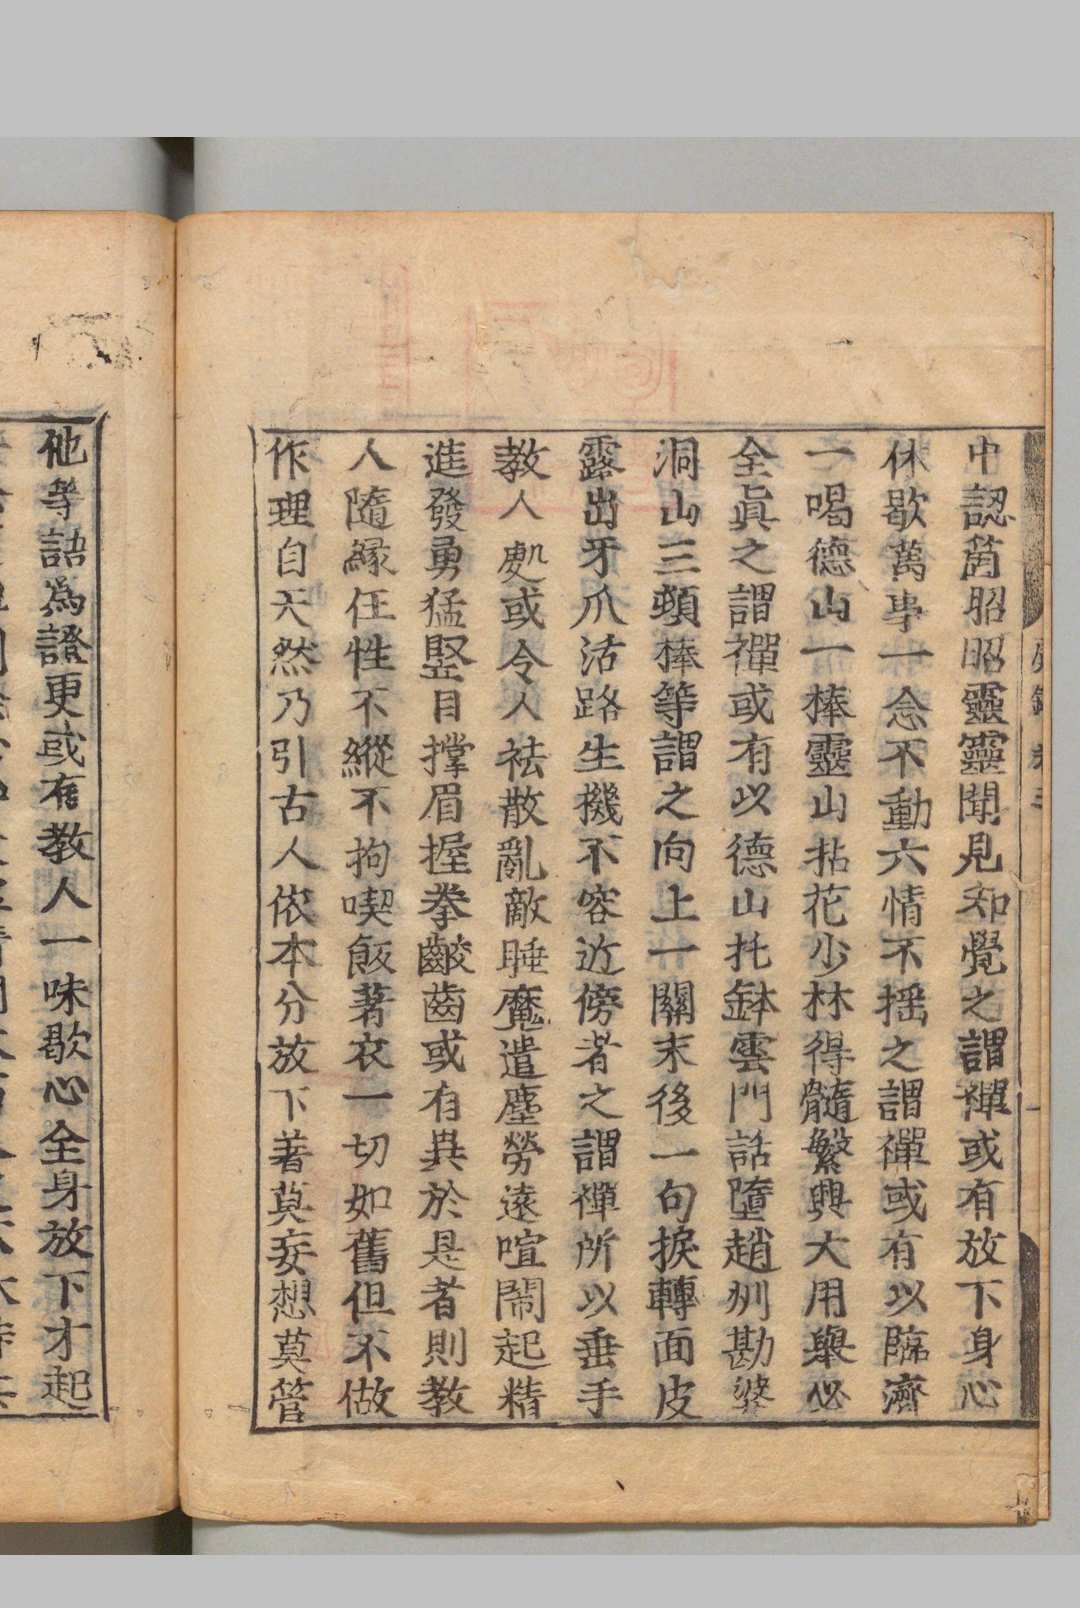 中認箇昭昭靈靈聞見知覺之謂禪或有放下身心
休歇萬事一念不動六情不揺之謂禪或有以臨濟
一喝德山一棒靈山拈花少林得髓繁興大用舉必
全眞之謂禪或有以德山托鉢雲門話墮趙州勘婆
洞山三頓棒等謂之向上一關末後一句捩轉面皮
露出牙爪活路生機不容近傍者之謂禪所以垂手
教人處或令人祛散亂敵睡魔遣塵勞遠喧鬧起精
進發勇猛竪目撑眉握拳齩齒或有異於是者則教
人隨緣任性不縱不拘喫飯著衣一切如舊但不做
作理自天然乃引古人依本分放下著莫妄想莫管
他等語爲證更或有教人一味歇心全身放下才起